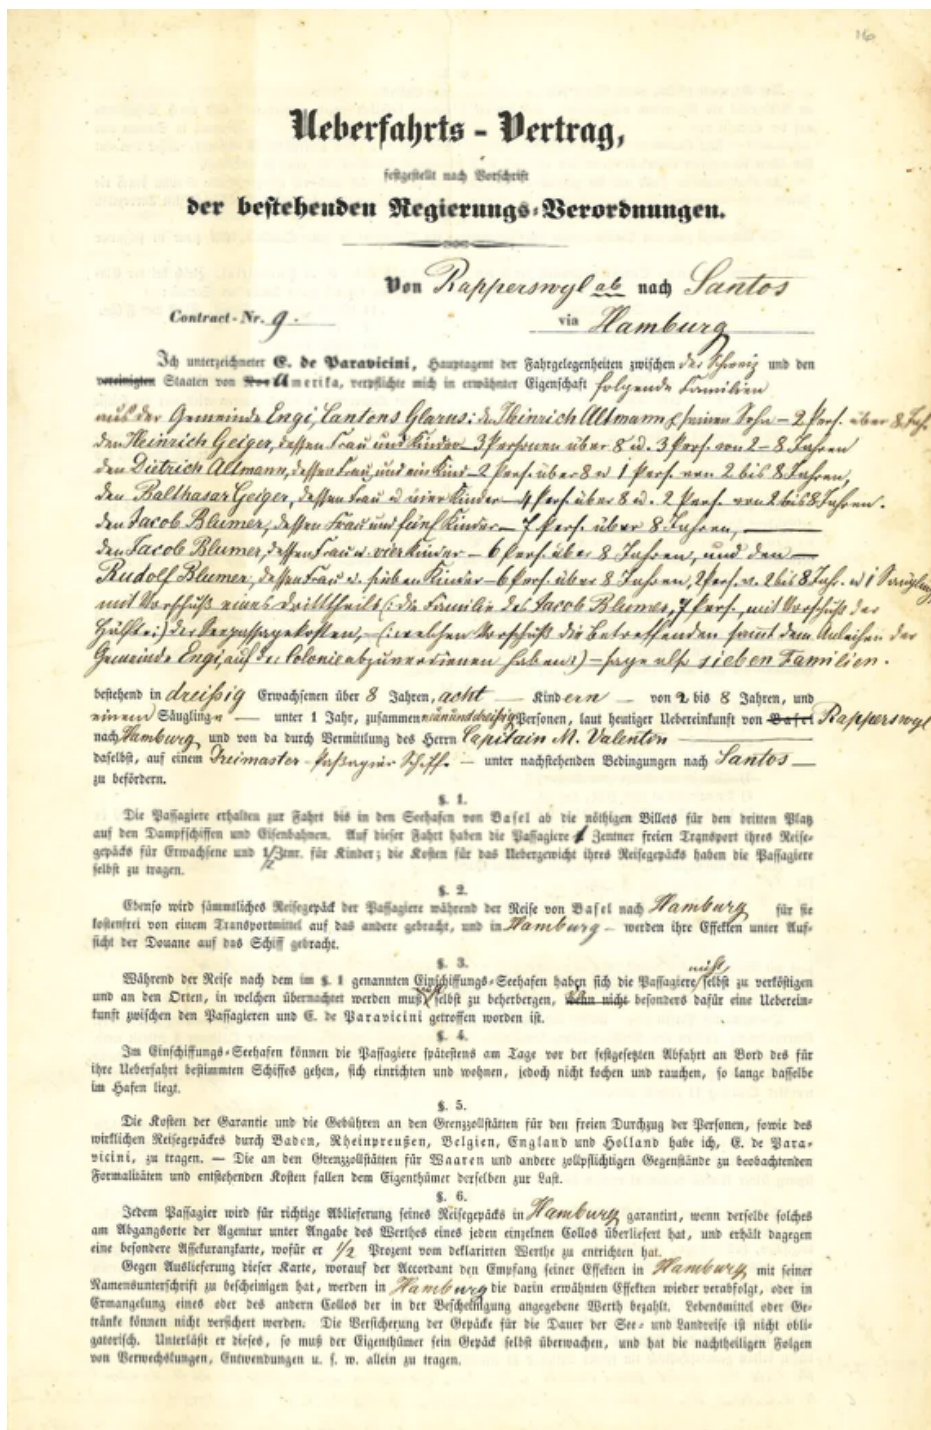 116
Ueberfahrts - Vertrag,
festgestellt nach Vorschrift
der bestehenden Regierungs-Verordnungen.
Von Rapperswyl ab nach Santos
Contract-Nr. 9.
via Hamburg
Ich unterzeichneter E. de Paravicini, Hauptagent der Fahrgelegenheiten zwischen der Schweiz und den
vereinigten Staaten von Nord Amerika, verpflichte mich in erwähnter Eigenschaft folgende Familien
aus der Gemeinde Engi, Cantons Glarus: den Heinrich Altmann & seinen Sohn – 2 Pers. über 8 Jah.
den Heinrich Geiger, dessen Frau und Kinder – 3 Personen über 8 u. 3 Pers. von 2–8 Jahren
den Dietrich Altmann, dessen Frau, und ein Kind – 2 Pers. über 8 u 1 Pers. von 2 bis 8 Jahren,
den Balthasar Geiger, dessen Frau u vier Kinder – 4 Pers. über 8 u. 2 Pers. von 2 bis 8 Jahren.
den Jacob Blumer, dessen Frau und fünf Kinder – 7 Pers. über 8 Jahren,
den Jacob Blumer, dessen Frau u. vier Kinder – 6 Pers. über 8 Jahren, und den
Rudolf Blumer, dessen Frau u. sieben Kinder – 6 Pers. über 8 Jahren, 2 Pers. v. 2 bis 8 Jahr. u 1 Säugling,
mit Vorschuß eines Dritttheils (: die Familie des Jacob Blumer, 7 Pers., mit Vorschuß der
Hälfte :) der Seepassagekosten, – (: welchen Vorschuß die betreffenden sammt dem Anleihen der
Gemeinde Engi, auf der Colonie abzuverdienen haben :) – sage als sieben Familien.
bestehend in dreißig Erwachsenen über 8 Jahren, acht Kindern von 2 bis 8 Jahren, und
einem Säugling – unter 1 Jahr, zusammen neununddreißig Personen, laut heutiger Uebereinkunft von Basel Rapperswyl
nach Hamburg und von da durch Vermittlung des Herrn Capitain M. Valenton
daselbst, auf einem Dreimaster-Paßagier Schiffe – unter nachstehenden Bedingungen nach Santos
zu befördern.
§. 1.
Die Passagiere erhalten zur Fahrt bis in den Seehafen von Basel ab die nöthigen Billets für den dritten Platz
auf den Dampfschiffen und Eisenbahnen. Auf dieser Fahrt haben die Passagiere 1 Zentner freien Transport ihres Reise-
gepäcks für Erwachsene und 1/2 Zntr. für Kinder; die Kosten für das Uebergewicht ihres Reisegepäcks haben die Passagiere
selbst zu tragen.
§. 2.
Ebenso wird sämmtliches Reisegepäck der Passagiere während der Reise von Basel nach Hamburg für sie
kostenfrei von einem Transportmittel auf das andere gebracht, und in Hamburg – werden ihre Effekten unter Auf-
sicht der Douane auf das Schiff gebracht.
§. 3.
Während der Reise nach dem im §. 1 genannten Einschiffungs-Seehafen haben sich die Passagiere nicht selbst zu verköstigen
und an den Orten, in welchen übernachtet werden muß, selbst zu beherbergen, besonders dafür eine Ueberein-
kunft zwischen den Passagieren und E. de Paravicini getroffen worden ist.
§. 4.
Im Einschiffungs-Seehafen können die Passagiere spätestens am Tage vor der festgesetzten Abfahrt an Bord des für
ihre Ueberfahrt bestimmten Schiffes gehen, sich einrichten und wohnen, jedoch nicht kochen und rauchen, so lange dasselbe
im Hafen liegt.
§. 5.
Die Kosten der Garantie und die Gebühren an den Grenzzollstätten für den freien Durchzug der Personen, sowie des
wirklichen Reisegepäckes durch Baden, Rheinpreußen, Belgien, England und Holland habe ich, E. de Para-
vicini, zu tragen. — Die an den Grenzzollstätten für Waaren und andere zollpflichtigen Gegenstände zu beobachtenden
Formalitäten und entstehenden Kosten fallen dem Eigenthümer derselben zur Last.
§. 6.
Jedem Passagier wird für richtige Ablieferung seines Reisegepäcks in Hamburg garantirt, wenn derselbe solches
am Abgangsorte der Agentur unter Angabe des Werthes eines jeden einzelnen Collos überliefert hat, und erhält dagegen
eine besondere Assekuranzkarte, wofür er 1/2 Prozent vom deklarirten Werthe zu entrichten hat.
Gegen Auslieferung dieser Karte, worauf der Accordant den Empfang seiner Effekten in Hamburg mit seiner
Namensunterschrift zu bescheinigen hat, werden in Hamburg die darin erwähnten Effekten wieder verabfolgt, oder in
Ermangelung eines oder des andern Collos der in der Bescheinigung angegebene Werth bezahlt. Lebensmittel oder Ge-
tränke können nicht versichert werden. Die Versicherung der Gepäcke für die Dauer der See- und Landreise ist nicht obli-
gatorisch. Unterläßt er dieses, so muß der Eigenthümer sein Gepäck selbst überwachen, und hat die nachtheiligen Folgen
von Verwechslungen, Entwendungen u. s. w. allein zu tragen.